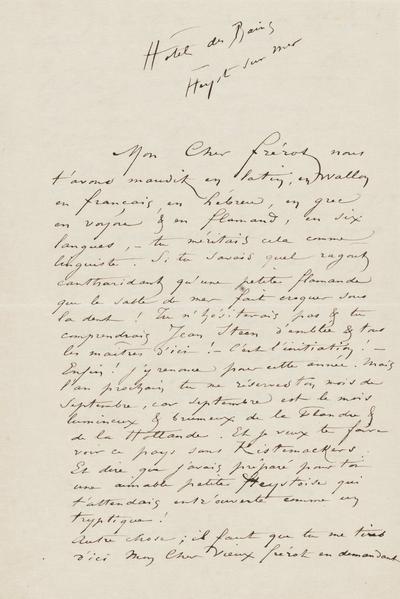 Hôtel des Bains
Heyst sur mer
Mon Cher frérot nous
t'avons maudit en latin, en wallon
en français, en hébreu, en grec
en voyou & en flamand, en six
langues, - tu méritais cela comme
linguiste. Si tu savais quel ragout
cantharidant qu'une petite flamande
que le sable de mer fait croquer sous
la dent ! Tu n'hésiterais pas & tu
comprendrais Jean Steen d'emblée & tous
les maîtres d'ici ! - C'est l'initiation ! -
Enfin ! j'y renonce pour cette année. Mais
l'an prochain tu me réserves ton mois de
Septembre, car septembre est le mois
lumineux & brumeux de la Flandre &
de la Hollande. Et je veux te faire
voir ce pays sans Kistemaekers.
Et dire que j'avais préparé pour toi
une aimable petite Heystoise qui
t'attendais entr'ouverte comme un
tryptique !
Autre chose ; il faut que tu me tires
d'ici Mon Cher vieux frérot en demandant